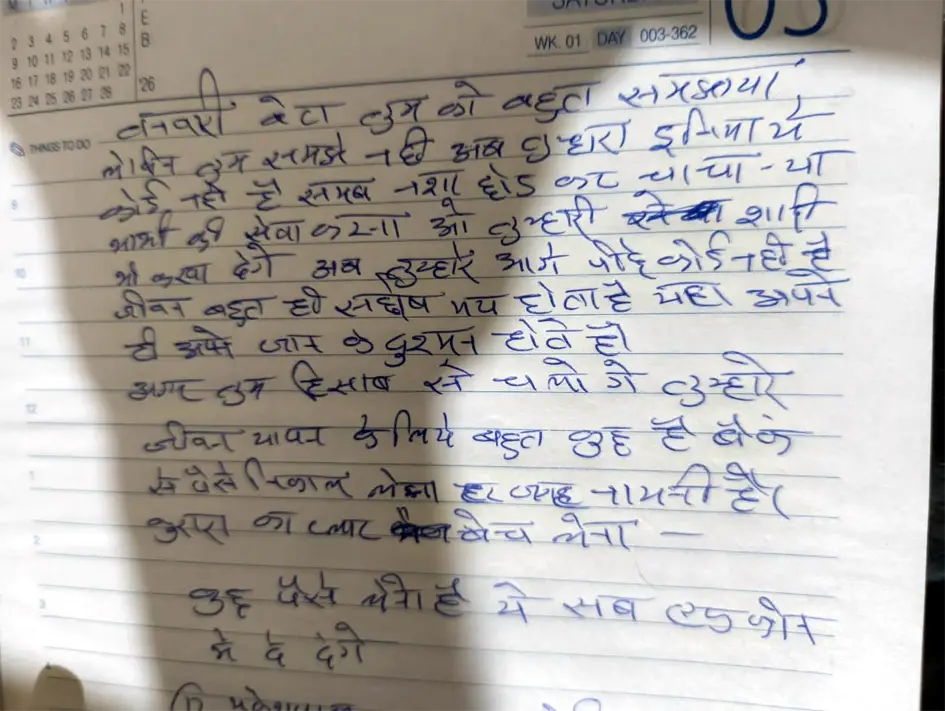 E
B
2 3 4 5 6 7 8
9 10 11 12 13 14 15
16 17 18 19 20 21 22
23 24 25 26 27 28
26
WK. 01 DAY 003-362
03
THINGS TO DO
बनवारी बेटा तुम को बहुत समझाया
लेकिन तुम समझे नही अब तुम्हारा दुनिया मे
कोई नही है समब नशा छोड कर चाचा - या
भाभी की सेवा करना ओ तुम्हारी शादी
भी करवा देगे अब तुम्हारे आगे पीछे कोई नही है
जीवन बहुत ही मय होता है यहा अपने
ही अपने जान के दुश्मन होते है।
अगर तुम हिसाब से चलोगे तुम्हारे
जीवन यापन के लिये बहुत कुछ है बैंक
से पैसे निकाल लेना हर जगह नामनी है।
का प्लाट बेच लेना —
कुछ पैसे लेने है ये सब एक फोन
मे दे देगे
8
10
11
12
1
2
3